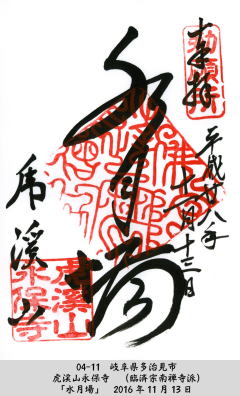 奉拝
勅願所
平成廿八年
十一月十三日
水月場
虎溪山
虎溪山
永保寺
04-11 岐阜県多治見市
虎渓山永保寺 (臨済宗南禅寺派)
「水月場」 2016年11月13日